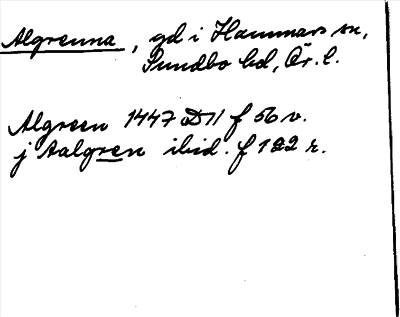 Algrenna, gd i Hammars sn,
Sundbo hd, Ör. l.
Algreen 1447 D 11 f 56 v.
j Aalgren ibid. f 122 r.